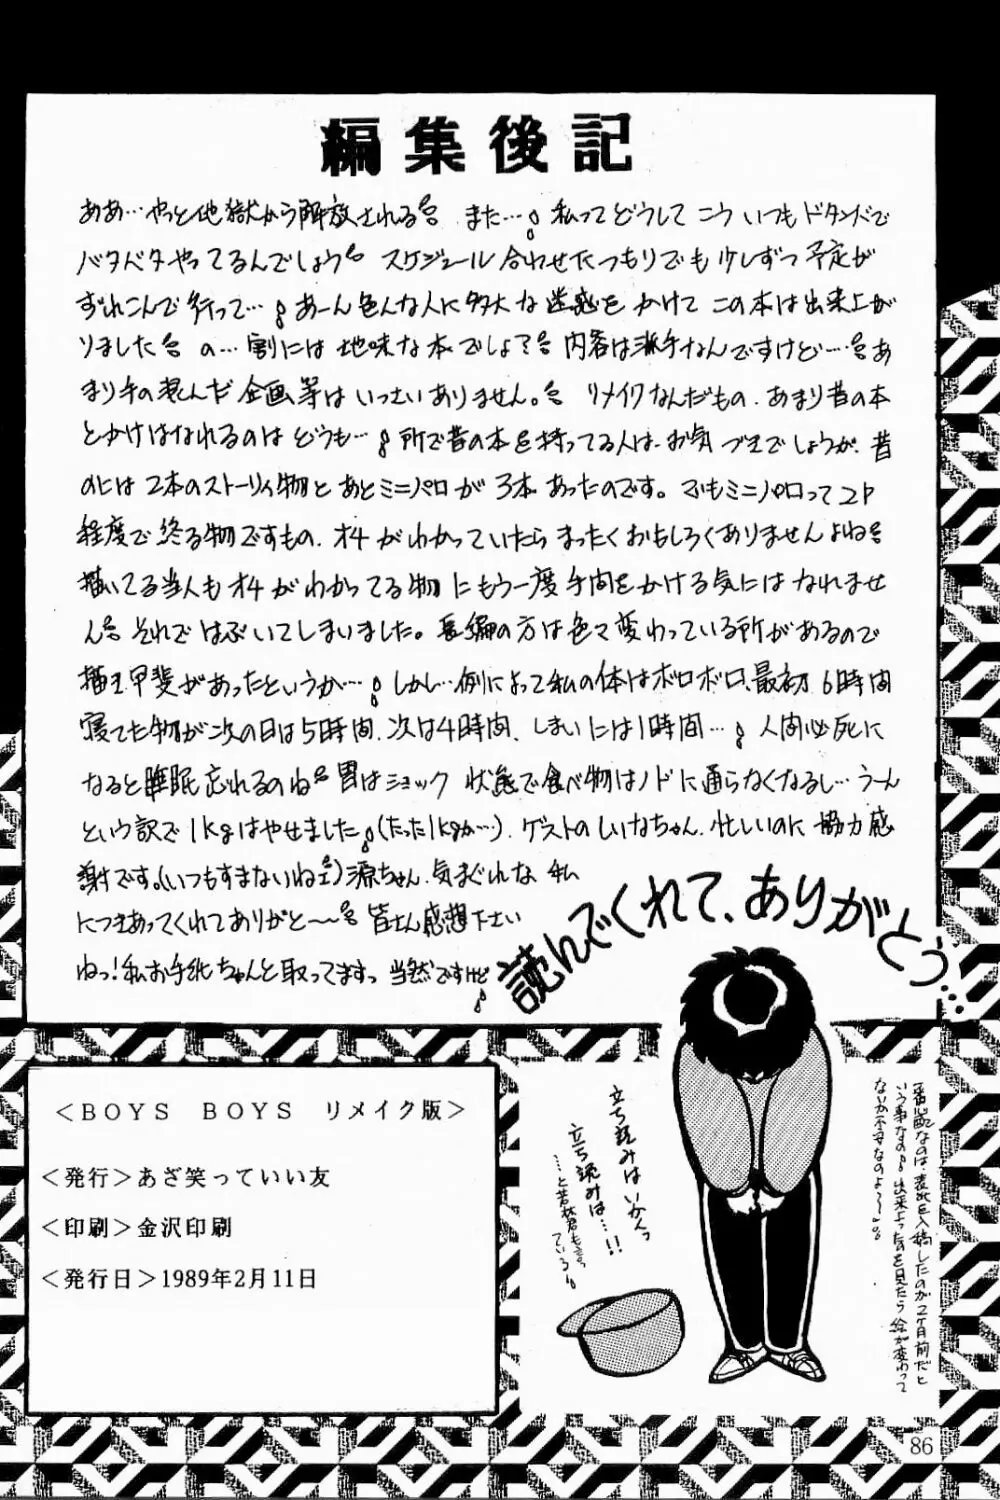 編集後記
ああ…やっと地獄から解放される また… 私ってどうして こう いつも ドタンバで
バタバタやってるんでしょう スケジュール 合わせたつもりでも少しずつ 予定が
ずれこんで 行って… あーん色んな人に多大な迷惑を かけて この本は出来上が
りました の… 割には 地味な本でしょ? 内容は派手なんですけど… あ
まり手の混んだ 企画等は いっさいありません。 リメイクなんだもの、あまり昔の本
とかけはなれるのは どうも… 所で昔の本を持ってる人は、お気 づきでしょうが、昔
のには 2本のストーリィ物と あとミニパロが 3本 あったのです。でもミニパロって 2P
程度で 終る物ですもの、オチがわかっていたら まったくおもしろくありませんよね
描いてる当人も オチが わかってる物 にもう一度 手間をかける気には なれませ
ん それで はぶいてしまいました。長編の方は色々変わっている所があるので
描き甲斐があったというか… しかし…例によって私の体はボロボロ、最初 6時間
寝てた物が次の日は5時間、次は4時間、しまいには1時間… 人間必死に
なると 睡眠 忘れるのね 胃はショック 状態で食べ物はノドに通らなくなるし… うーん
という訳で 1kgはやせました(たった1kgか…)、ゲストのしいなちゃん、忙しいのに 協力感
謝です。(いつもすまないね)源ちゃん、気まぐれな 私
につきあってくれてありがと〜〜 皆さん感想下さい
ねっ!私お手紙ちゃんと取ってますっ 当然ですけど
読んでくれて、ありがとう…
<BOYS BOYS リメイク版>
<発行>あざ笑っていい友
<印刷>金沢印刷
<発行日>1989年2月11日
立ち読みはいかんっ
立ち読みは…!!
…と若林君も言っ
ている
一番心配なのは、表紙を入稿したのが2ヶ月前だと
いう事なの 出来上ったのを見たら 絵が変わって
ないか不安なのよ〜
86